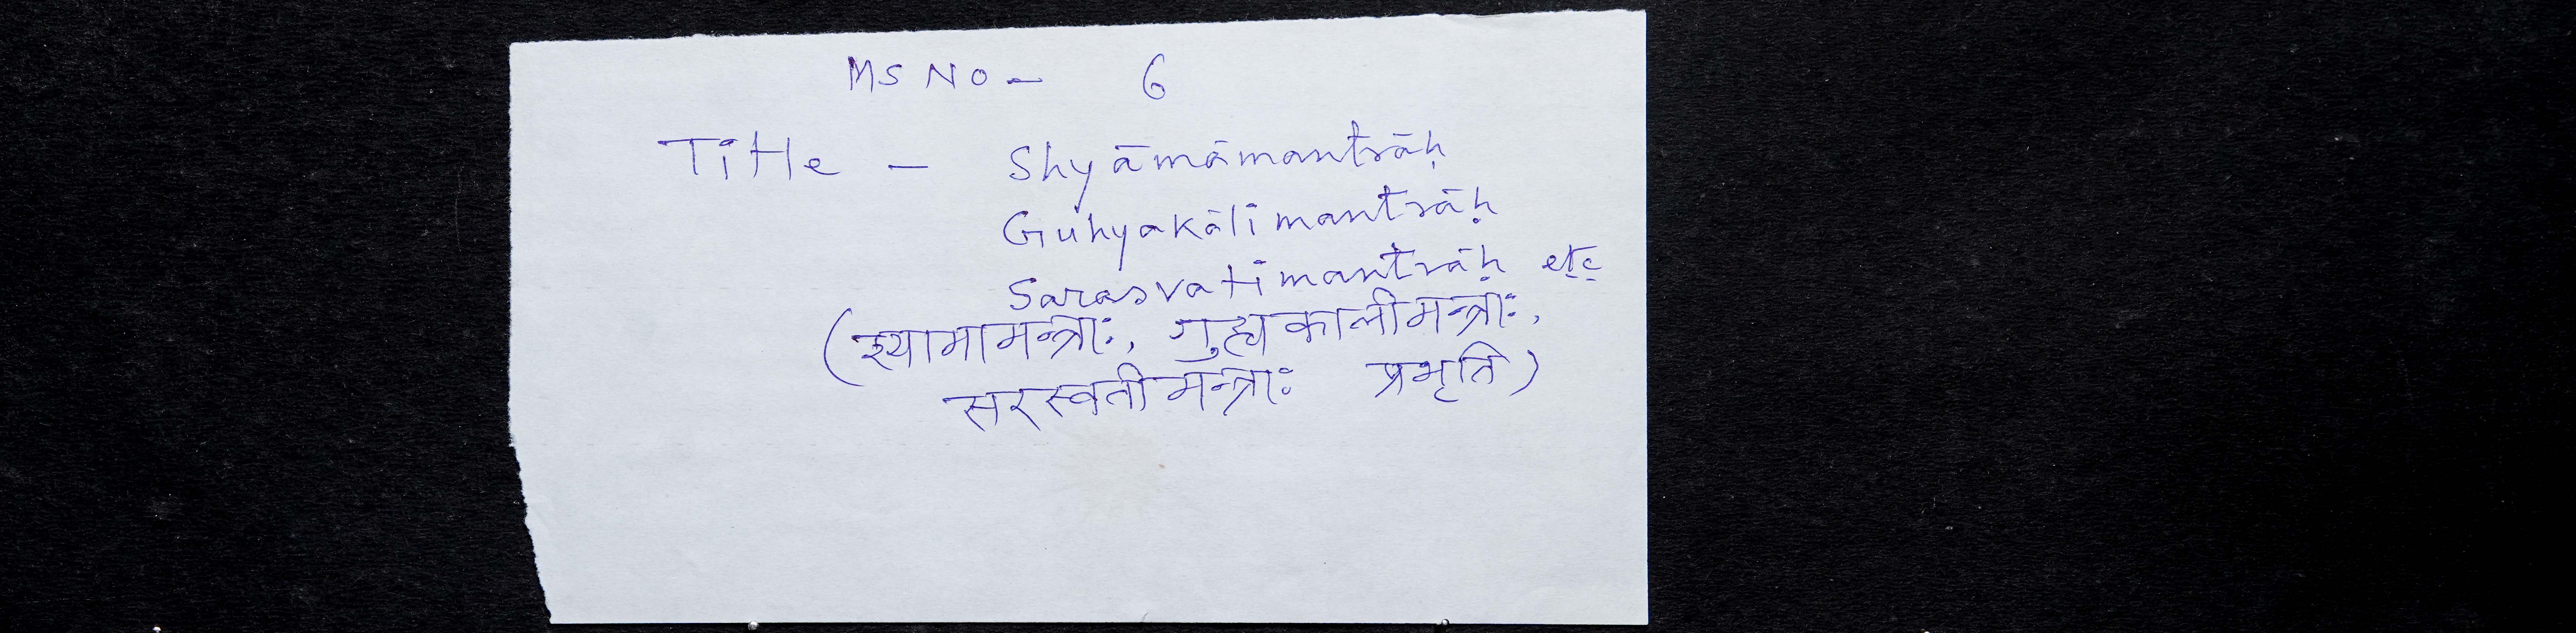 MS NO - 6
Title - Shyāmāmantrāḥ
Guhyakālīmantrāḥ
Sarasvatīmantrāḥ etc
(श्यामामन्त्राः, गुह्यकालीमन्त्राः,
सरस्वतीमन्त्राः प्रभृति)